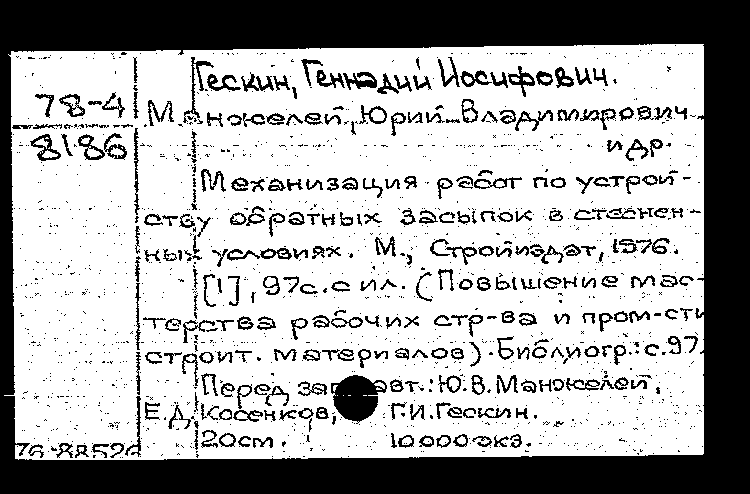 Гескин, Геннадий Иосифович.
78-4
Манжелей, Юрий Владимирович
8186
и др.
Механизация работ по устрой-
ству обратных засыпок в стеснен-
ных условиях. М., Стройиздат, 1976.
[1], 97с. с ил. (Повышение мас-
терства рабочих стр-ва и пром-сти
строит. материалов). Библиогр.: с.97.
Перед авт.: Ю.В. Манжелей,
Е.Д. Косенков, Г.И. Гескин.
20см. 10000 экз.
76-88526